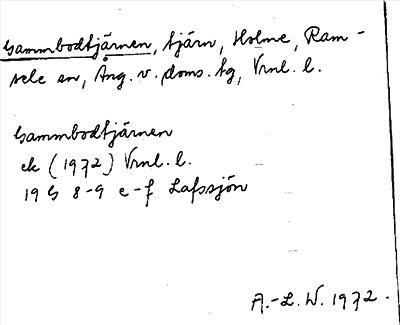 Gammbodtjärnen, tjärn, Holme, Ram-
sele sn, Ång. v. doms. tg, Vrnl. l.
Gammbodtjärnen
ek (1972) Vrnl. l.
19 G 8-9 e-f Lafssjön
A.-L. W. 1972.